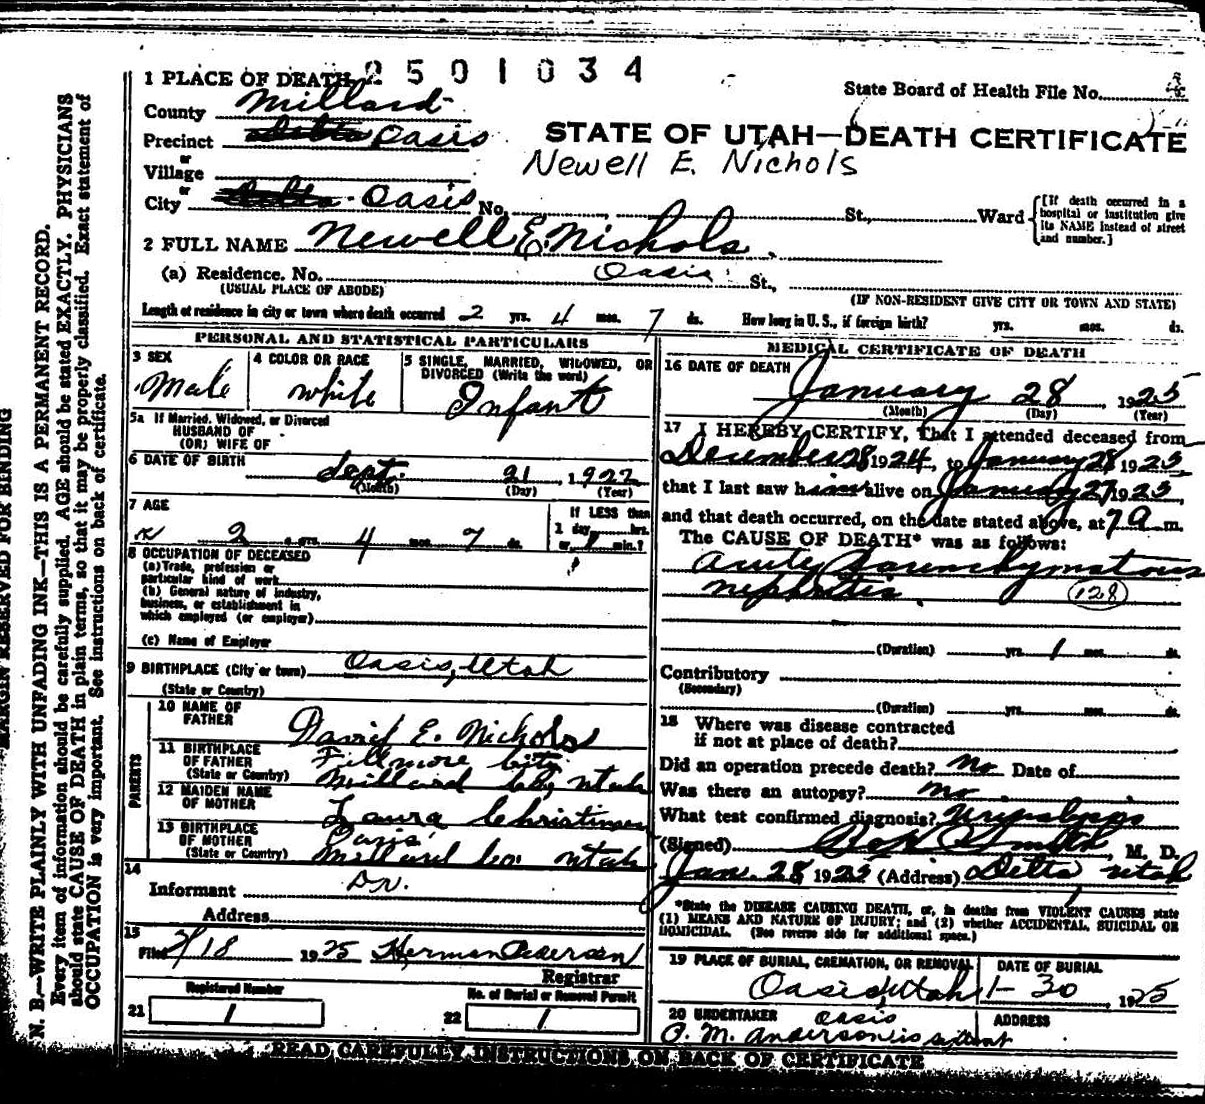 1 PLACE OF DEATH 2501034
State Board of Health File No.
County Millard
STATE OF UTAH—DEATH CERTIFICATE
Precinct Delta Oasis
Newell E. Nichols
or
Village
or
City Delta Oasis No. St., Ward
[If death occurred in a hospital or institution give its NAME instead of street and number.]
2 FULL NAME Newell E. Nichols
(a) Residence. No. Oasis St.,
(USUAL PLACE OF ABODE) (IF NON-RESIDENT GIVE CITY OR TOWN AND STATE)
Length of residence in city or town where death occurred 2 yrs. 4 mos. 7 ds. How long in U. S., if foreign birth? yrs. mos. ds.
PERSONAL AND STATISTICAL PARTICULARS
3 SEX
Male
4 COLOR OR RACE
white
5 SINGLE, MARRIED, WIDOWED, OR
DIVORCED (Write the word)
Infant
5a If Married, Widowed, or Divorced
HUSBAND OF
(OR) WIFE OF
6 DATE OF BIRTH
Sept. 21, 1922
(Month) (Day) (Year)
7 AGE
2 yrs. 4 mos. 7 ds.
If LESS than
1 day hrs.
or min.?
8 OCCUPATION OF DECEASED
(a) Trade, profession or
particular kind of work
(b) General nature of industry,
business, or establishment in
which employed (or employer)
(c) Name of Employer
9 BIRTHPLACE (City or town) Oasis, Utah
(State or Country)
PARENTS
10 NAME OF
FATHER David E. Nichols
11 BIRTHPLACE
OF FATHER
(State or Country)
Fillmore City
Millard Co, Utah
12 MAIDEN NAME
OF MOTHER Laura Christinsen
13 BIRTHPLACE
OF MOTHER
(State or Country)
Oasis
Millard Co. Utah
14
Informant Dr.
Address
15
Filed 2/18 1925 Herman Pederson
Registrar
Registered Number
21 1
No. of Burial or Removal Permit
22 1
MEDICAL CERTIFICATE OF DEATH
16 DATE OF DEATH
January 28, 1925
(Month) (Day) (Year)
17 I HEREBY CERTIFY, That I attended deceased from
December 28 1924, to January 28 1925
that I last saw him alive on January 27 1925,
and that death occurred, on the date stated above, at 7 a m.
The CAUSE OF DEATH* was as follows:
Acute Parenchymatous
nephritis. 128
(Duration) yrs. 1 mos. ds.
Contributory
(Secondary)
(Duration) yrs. mos. ds.
18 Where was disease contracted
if not at place of death?
Did an operation precede death? No Date of
Was there an autopsy? No
What test confirmed diagnosis?
(Signed) Smith, M. D.
Jan. 28, 1925 (Address) Delta Utah
*State the DISEASE CAUSING DEATH, or, in deaths from VIOLENT CAUSES state
(1) MEANS AND NATURE OF INJURY; and (2) whether ACCIDENTAL, SUICIDAL OR
HOMICIDAL. (See reverse side for additional space.)
19 PLACE OF BURIAL, CREMATION, OR REMOVAL
Oasis, Utah
DATE OF BURIAL
1-30, 1925
20 UNDERTAKER Oasis
P. M. Anderson
ADDRESS
READ CAREFULLY INSTRUCTIONS ON BACK OF CERTIFICATE
MARGIN RESERVED FOR BINDING
N. B.—WRITE PLAINLY WITH UNFADING INK—THIS IS A PERMANENT RECORD.
Every item of information should be carefully supplied. AGE should be stated EXACTLY. PHYSICIANS
should state CAUSE OF DEATH in plain terms, so that it may be properly classified. Exact statement of
OCCUPATION is very important. See instructions on back of certificate.